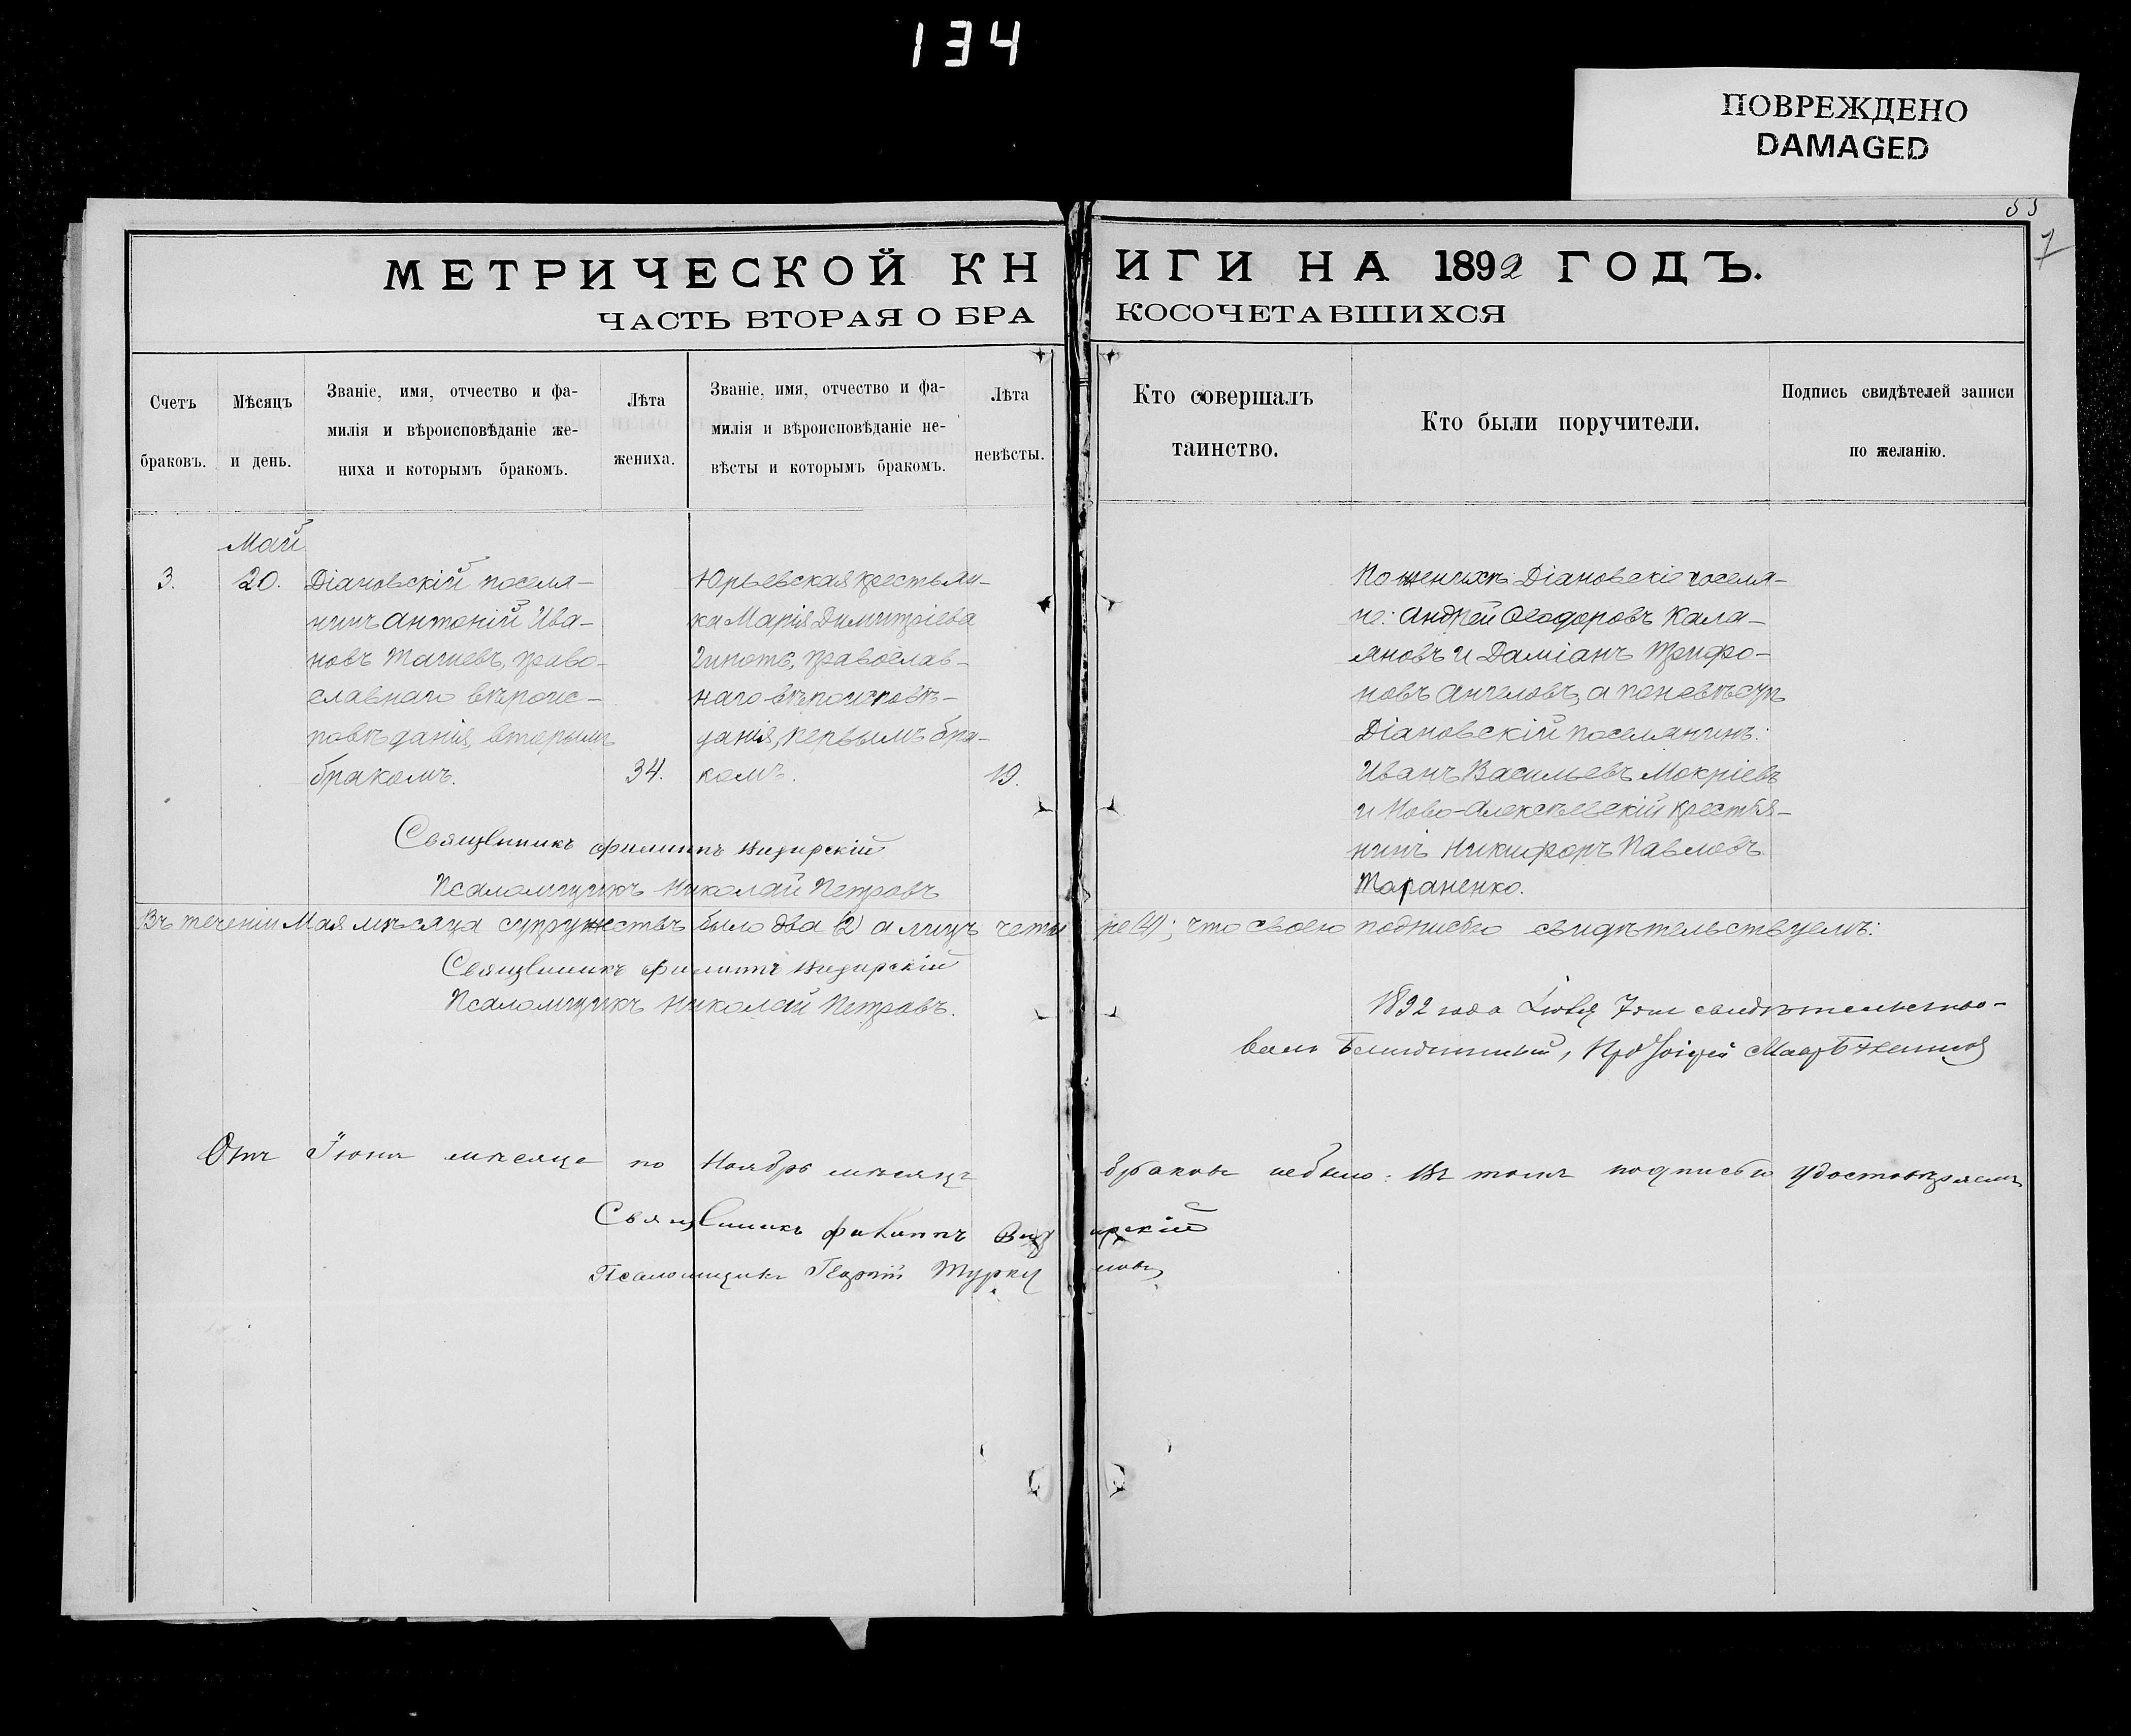 134
ПОВРЕЖДЕНО
DAMAGED
55
7
МЕТРИЧЕСКОЙ КНИГИ НА 1892 ГОДЪ.
ЧАСТЬ ВТОРАЯ О БРАКОСОЧЕТАВШИХСЯ
Счетъ
браковъ.
Мѣсяцъ
и день.
Званіе, имя, отчество и фа-
милія и вѣроисповѣданіе же-
ниха и которымъ бракомъ.
Лѣта
жениха.
Званіе, имя, отчество и фа-
милія и вѣроисповѣданіе не-
вѣсты и которымъ бракомъ.
Лѣта
невѣсты.
Кто совершалъ
таинство.
Кто были поручители.
Подпись свидѣтелей записи
по желанію.
Май
3.
20.
Діановскій поселя-
нинъ Антоній Ива-
новъ правo-
славнаго вѣроис-
повѣданія, вторымъ
бракомъ.
34.
Юрьевская крестьян-
ка Марія Димитріева
православ-
наго вѣроисповѣ-
данія, первымъ бра-
комъ.
19.
По женихѣ Діановскіе поселя-
не: Андрей Ѳеодоровъ Кала-
яновъ и Даміанъ Трифо-
новъ Ангеловъ, а по невѣстѣ
Діановскій поселянинъ:
Иванъ Васильевъ Мокріевъ
и Ново-Алексѣевскій крестья-
нинъ Никифоръ Павловъ
Тараненко.
Священникъ Филиппъ
Псаломщикъ Николай Петровъ
Въ теченіи Мая мѣсяца супружествъ было два (2) а лицъ четыре (4); что своею подписью свидѣтельствуемъ:
Священникъ Филиппъ
Псаломщикъ Николай Петровъ.
1892 года 7 дня свидѣтельство-
валъ
Отъ Іюня мѣсяца по Ноябрь мѣсяцъ браковъ небыло: въ томъ подписью удостовѣряемъ
Священникъ Филиппъ
Псаломщикъ Георгій